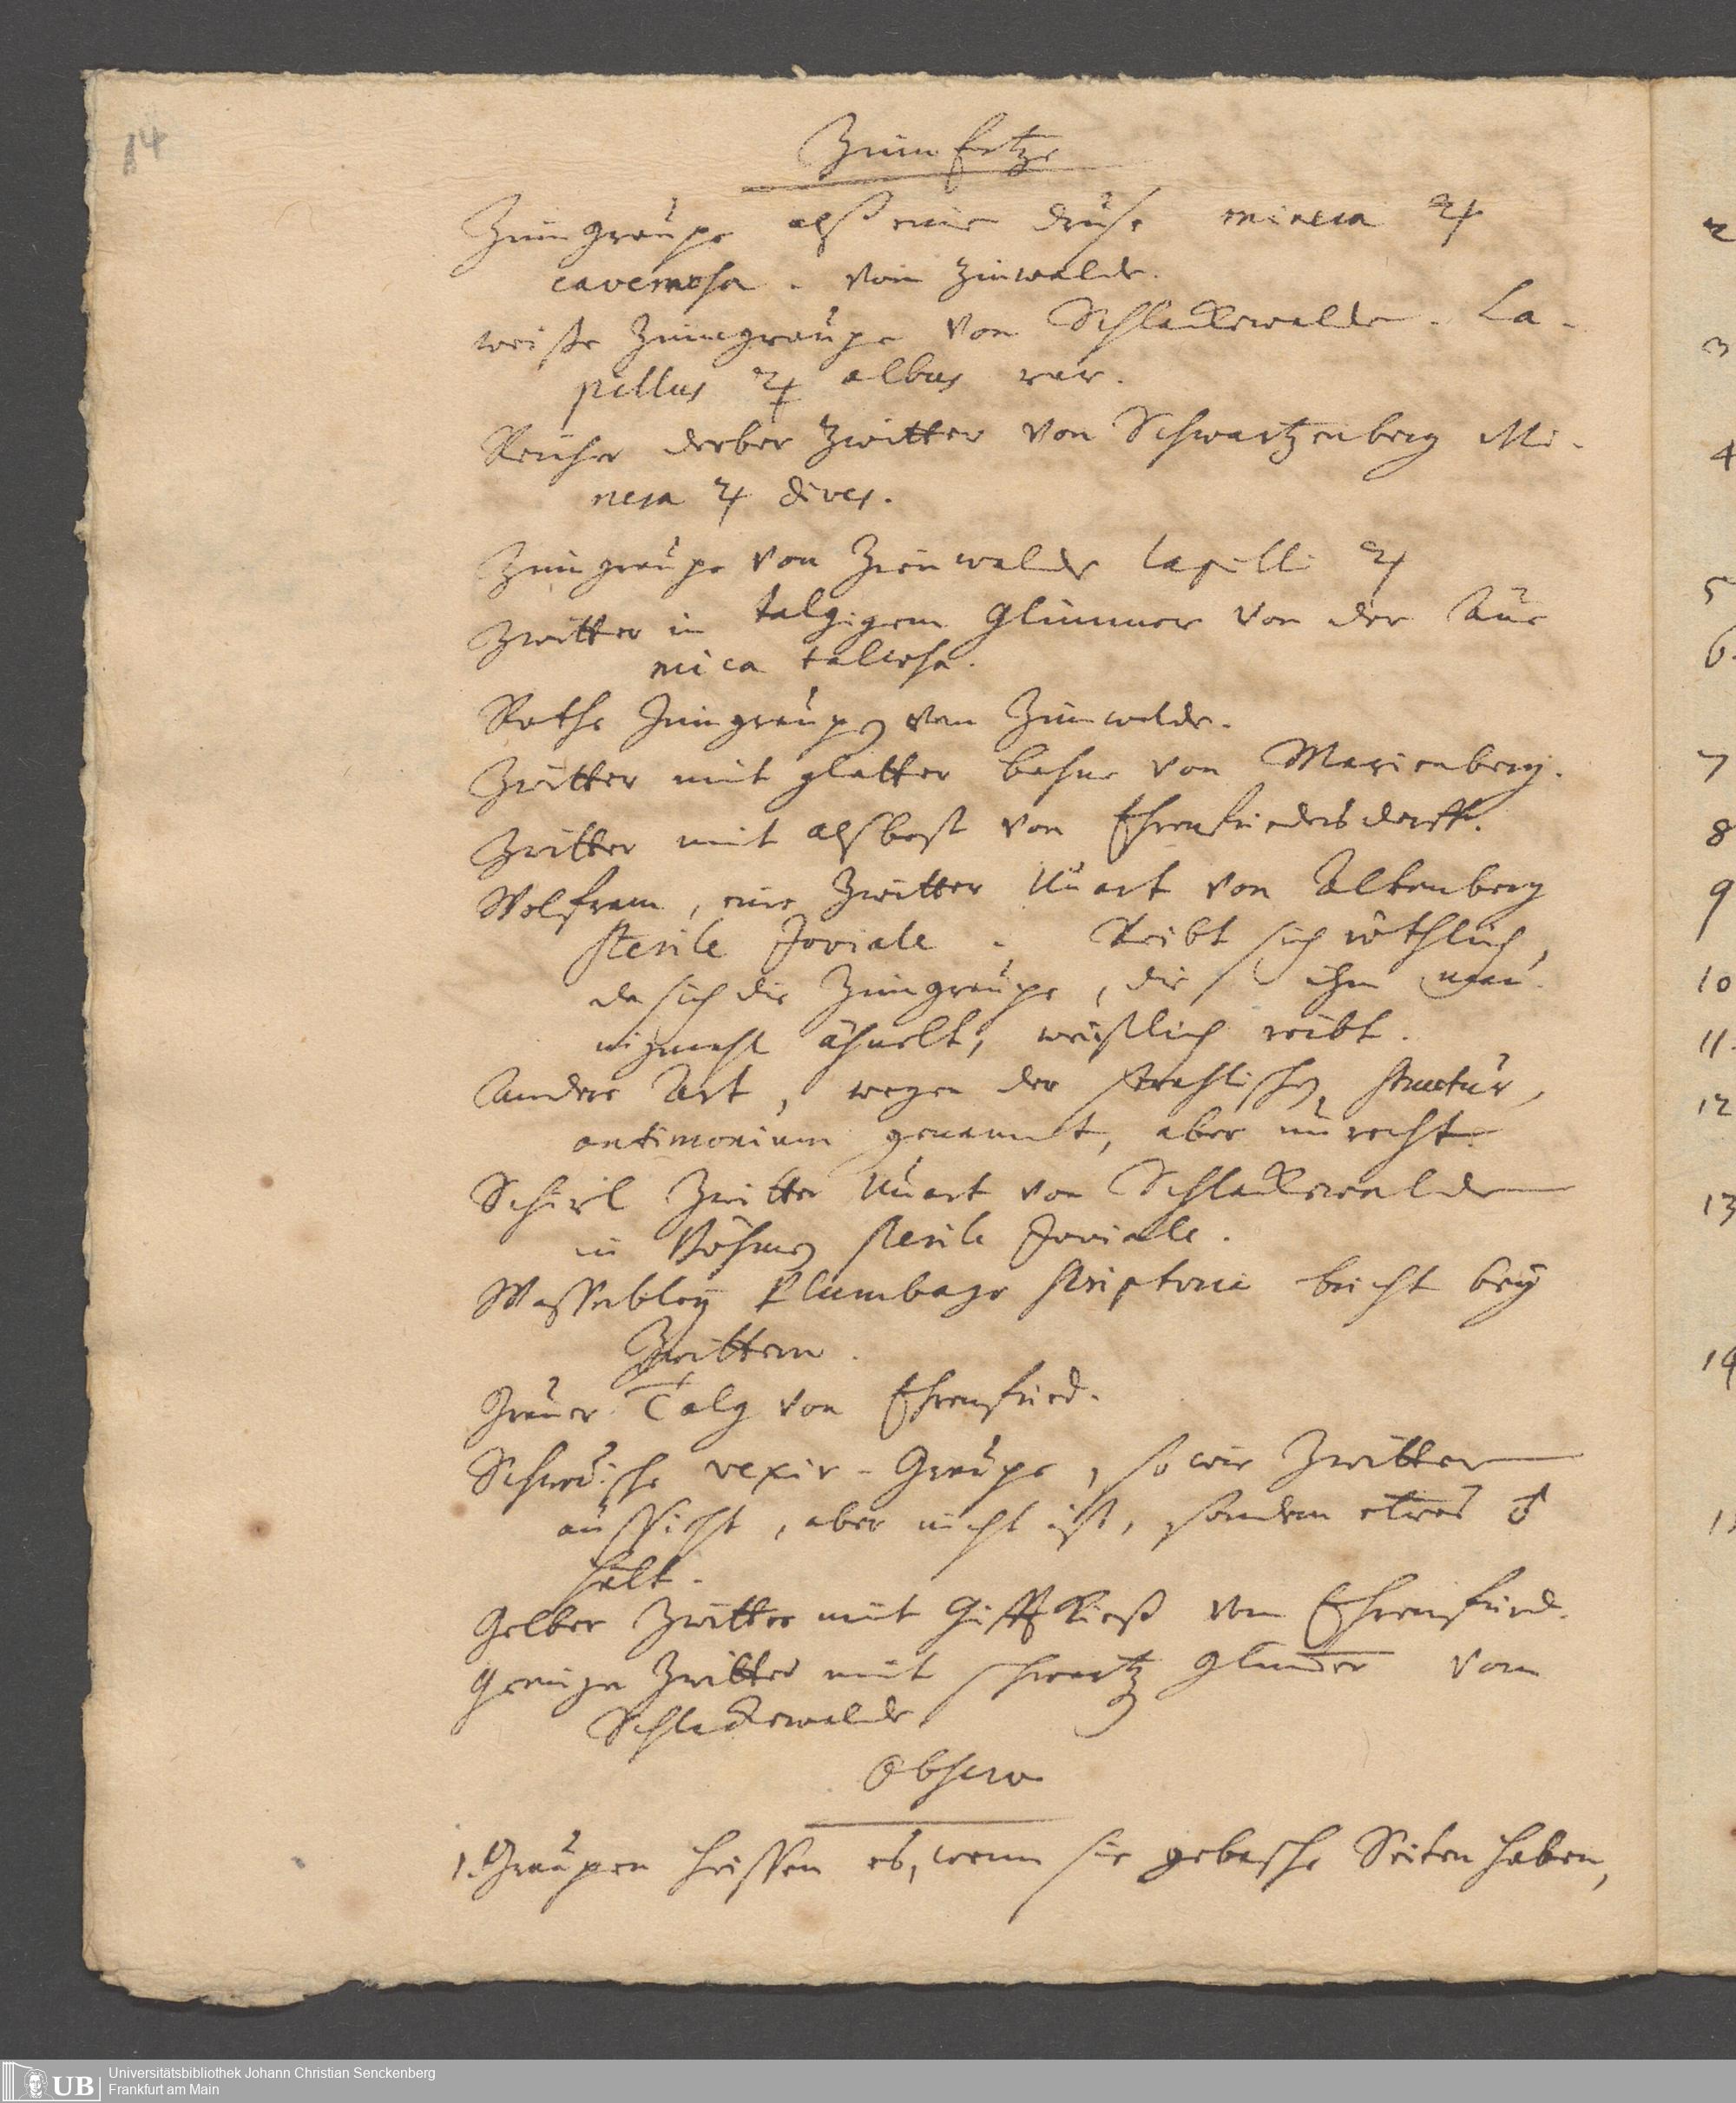 14
Zinn Ertze
Zinngraupe alß eine druse minera ♃
cavernosa. von Zinwalde.
weiße Zinngraupe von Schlackewalde. La-
pillus ♃ albus rar.
Reicher derber Zwitter von Schwartzenberg Mi-
nera ♃ dives.
Zinngraupe von Zinnwalde lapilli ♃
Zwitter in talgigem Glimmer von der Aue
mica talcosa.
Rothe Zinngraupen von Zinnwalde.
Zwitter mit glatter bahne von Marienberg.
Zwitter mit alsbest von Ehrenfriedersdorff.
Wolfram, eine Zwitter Unart von Altenberg
sterile Joviale. Reibt sich röthlich,
da sich die Zinngraupe, die ihm
ähnelt, weißlich reibt.
Andere Art, wegen der strahlischen structur,
antimonium genannt, aber unrecht.
Schirl Zwitter Unart von Schlackewalde
in Böhmen sterile Joviale.
Wasserbley Plumbago scriptoria bricht bey
Zwittern.
Grauer Talg von Ehrenfried.
Schwedische vexir-Graupe, so wie Zwitter
aussieht, aber nicht ist, sondern etwas ♂
hält.
Gelber Zwitter mit Gifft Kieß von Ehrenfried.
Zwitter mit schwartz Glimmer vom
Schlackewalde
Observ
1. Graupen heissen es, wenn sie Seiten haben,
2
3
4
5
6.
7
8
9
10
11.
12
13
14
Universitätsbibliothek Johann Christian Senckenberg
Frankfurt am Main
UB